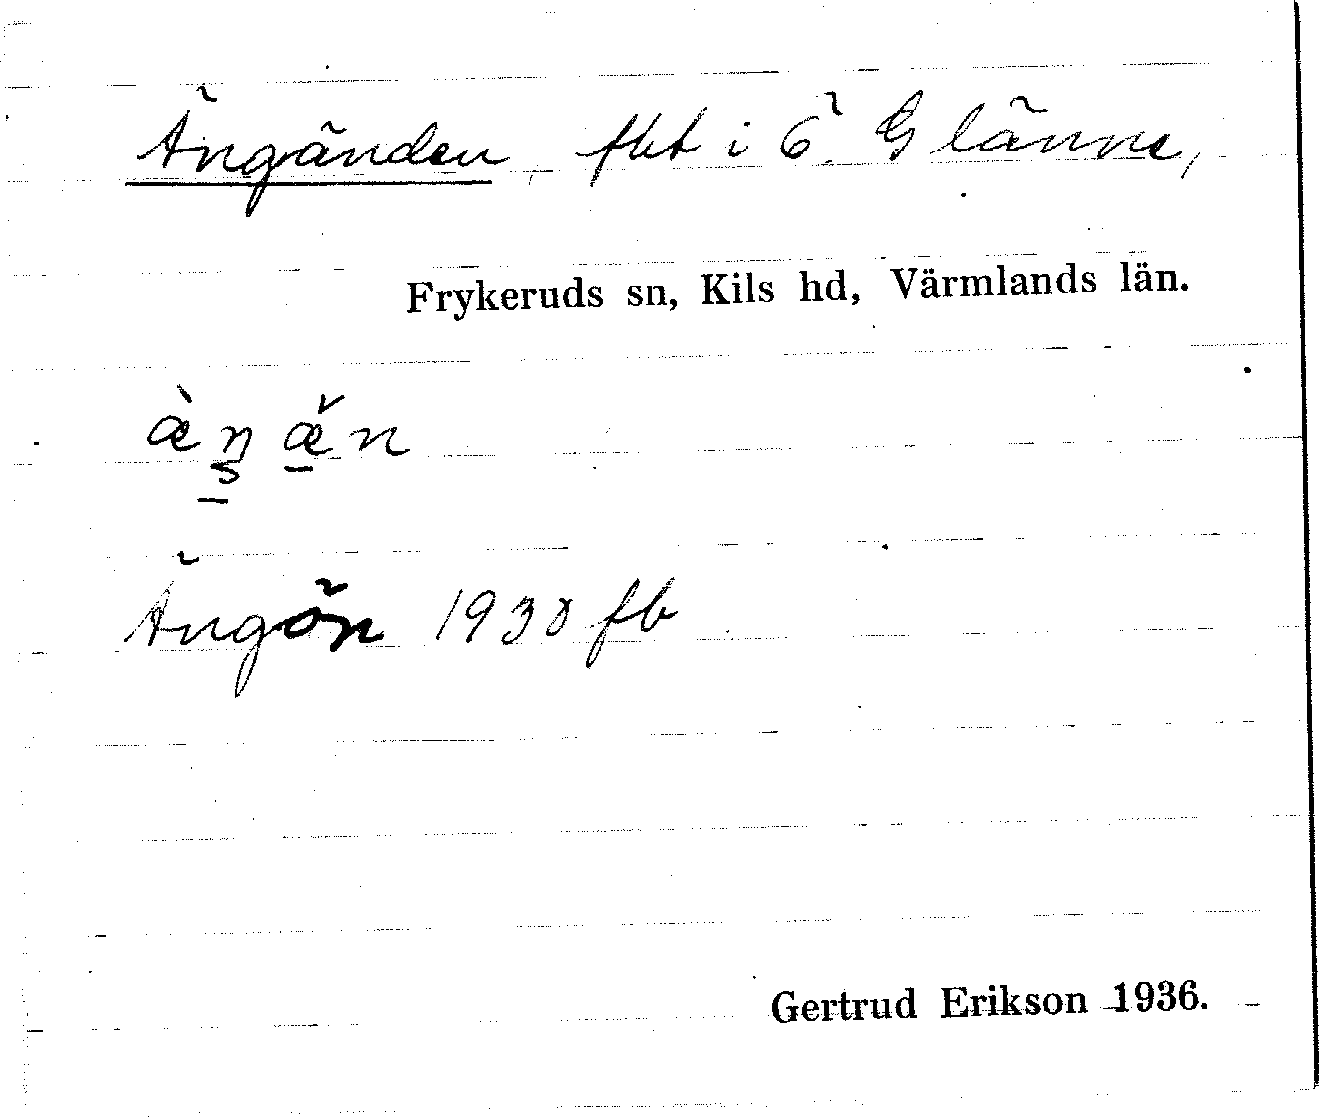 Ängänden, fkt i Ö. Glänne,
Frykeruds sn, Kils hd, Värmlands län.
Ängön 1930 fb
Gertrud Erikson 1936.